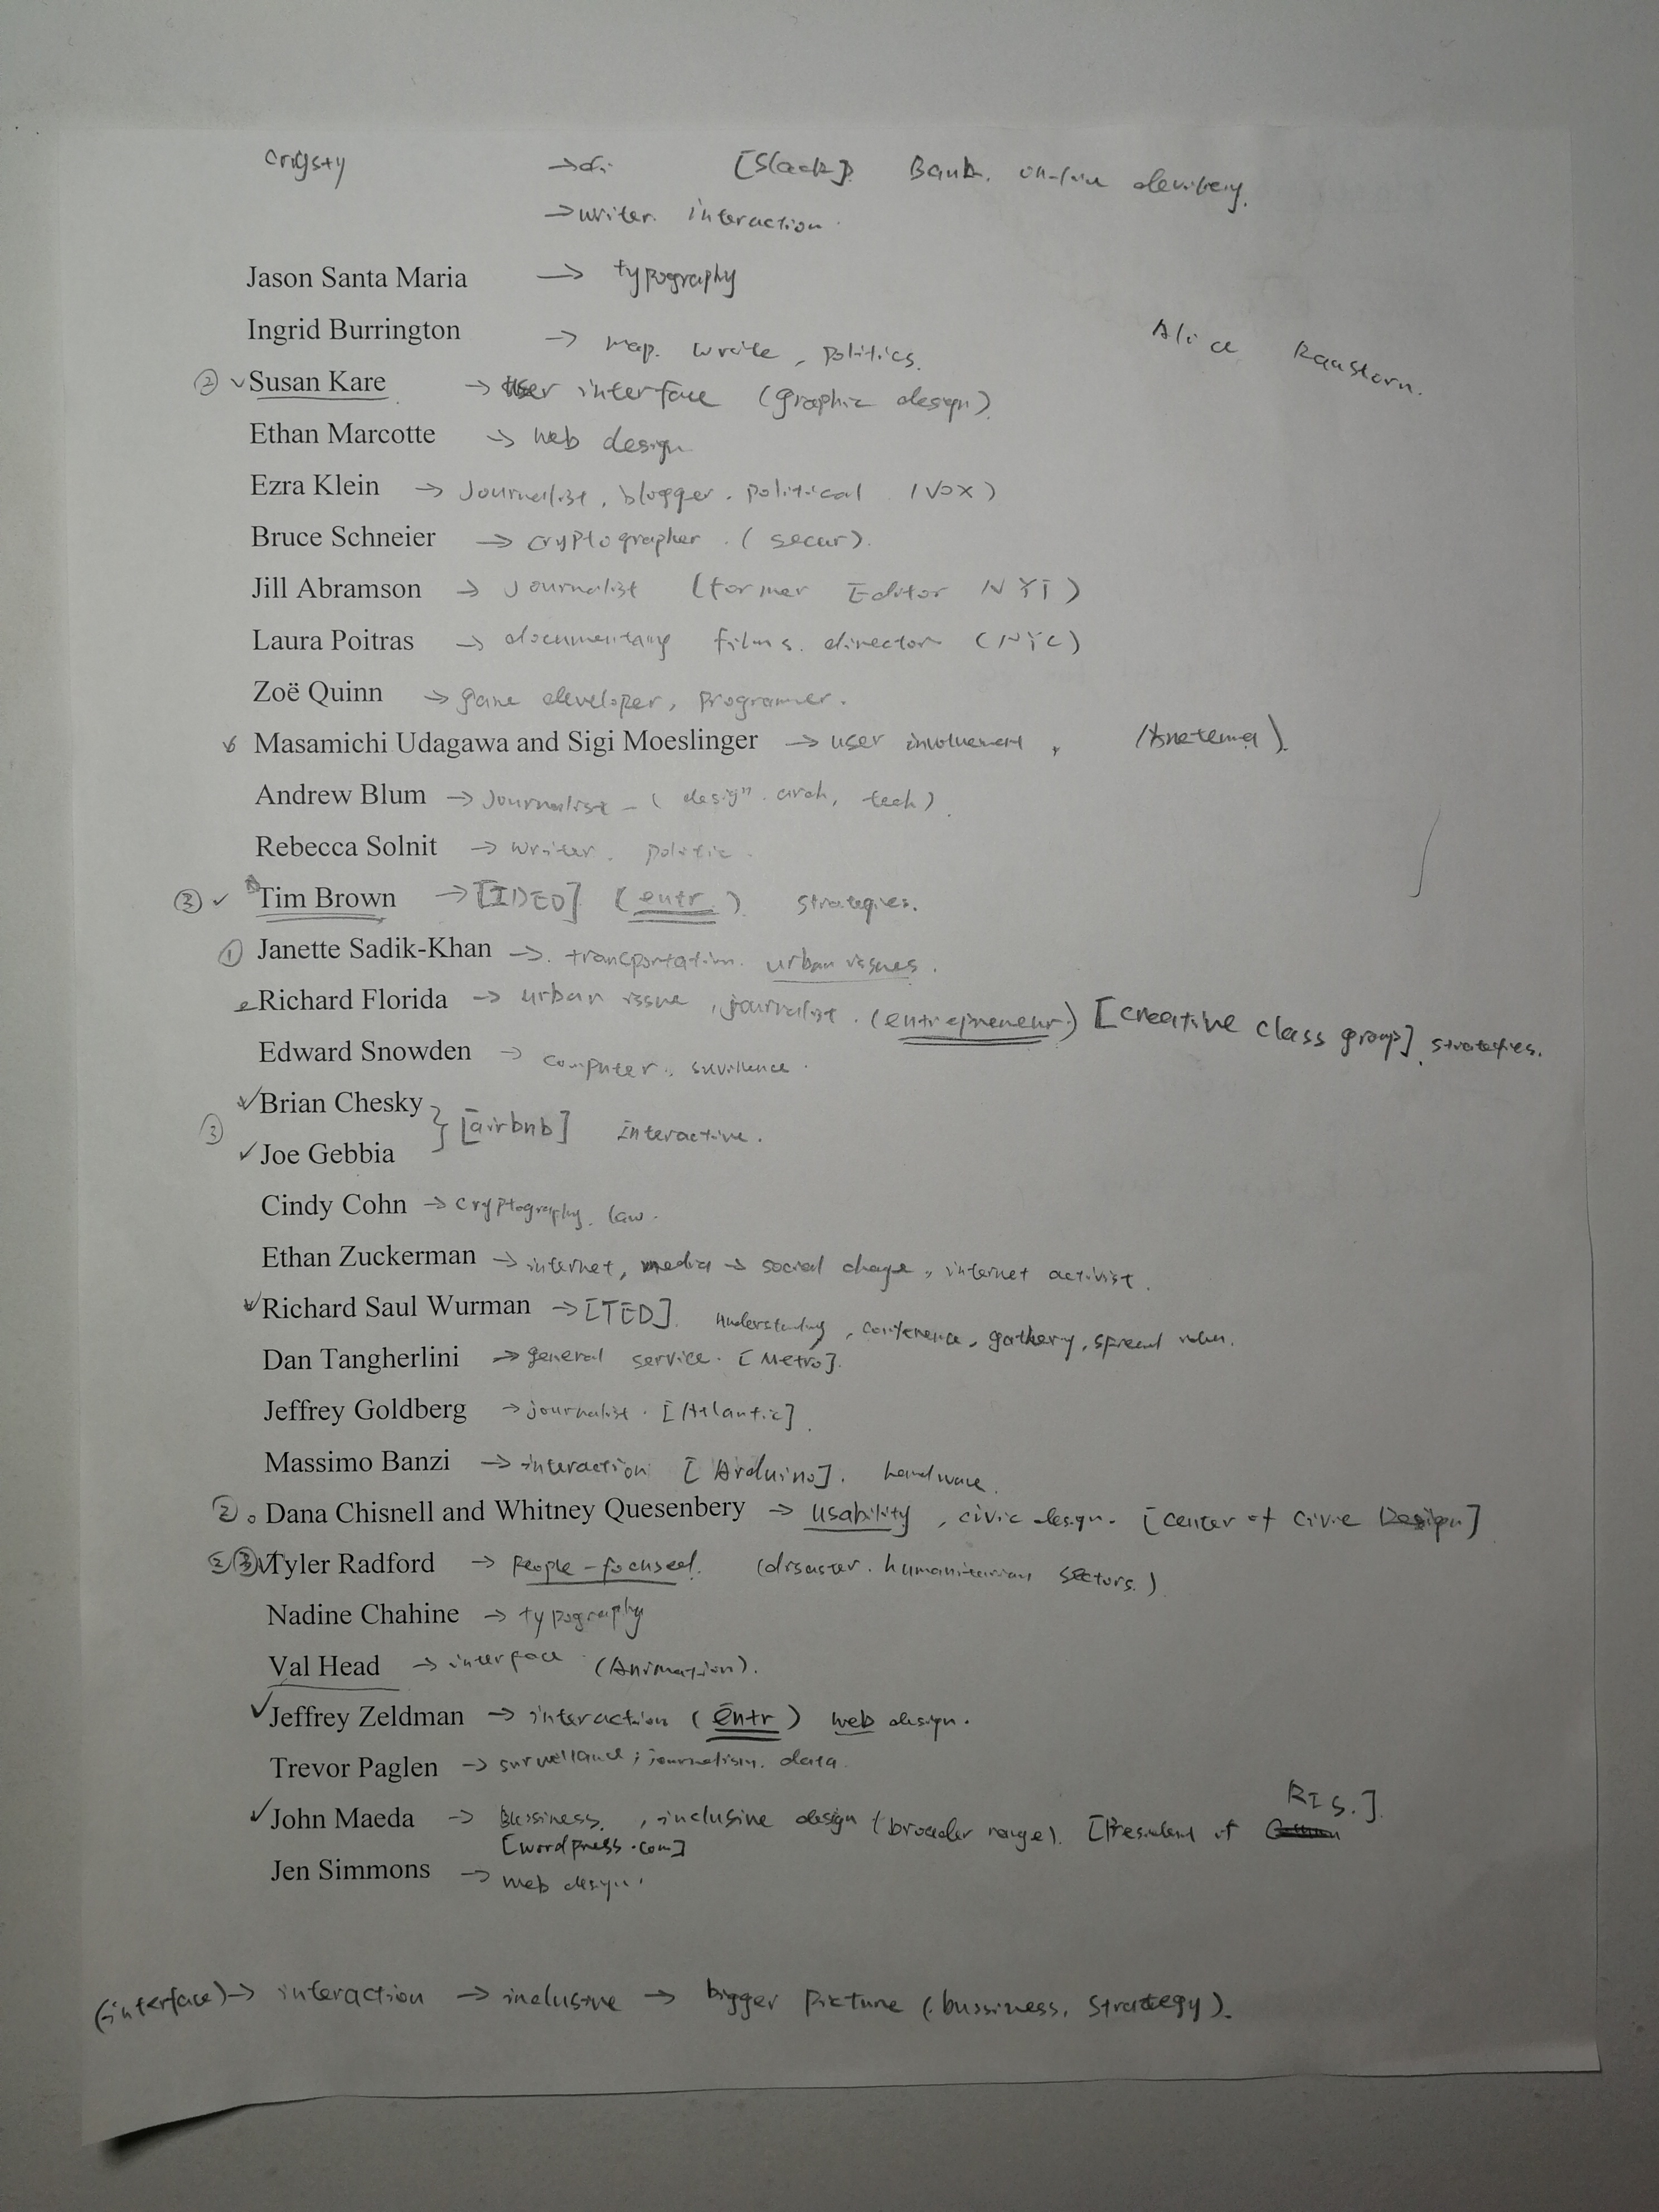 crigsty → di [Slack]. Bank. on-line
→ writer. interaction.
Jason Santa Maria → typography
Ingrid Burrington → map. write, politics.
Alice
② ✓ Susan Kare → user interface (graphic design).
Ethan Marcotte → web design
Ezra Klein → Journalist, blogger. political (VOX)
Bruce Schneier → cryptographer. (secur).
Jill Abramson → Journalist (former Editor NYT)
Laura Poitras → documentary films. director (NYC)
Zoë Quinn → game developer, programer.
Masamichi Udagawa and Sigi Moeslinger → user involvement, (Antenna).
Andrew Blum → Journalist - (design. arch, tech).
Rebecca Solnit → writer. politic.
③ ✓ Tim Brown → [IDEO] (entr.) strategies.
① Janette Sadik-Khan → transportation. urban issues.
Richard Florida → urban issue, journalist. (entrepreneur.) [creative class group]. strategies.
Edward Snowden → computer., survillence.
✓ Brian Chesky
③ } [airbnb] interactive.
✓ Joe Gebbia
Cindy Cohn → cryptography. law.
Ethan Zuckerman → internet, media → social change, internet activist.
✓ Richard Saul Wurman → [TED]. understanding, conference, gathery, spread
Dan Tangherlini → general service. [Metro].
Jeffrey Goldberg → journalist. [Atlantic].
Massimo Banzi → interaction [Arduino]. hardware.
②. Dana Chisnell and Whitney Quesenbery → usability, civic design. [center of Civic Design]
② ③ ✓ Tyler Radford → people-focused. (disaster. humanitarian sectors.)
Nadine Chahine → typography
Val Head → interface (Animation).
✓ Jeffrey Zeldman → interaction (entr) web design.
Trevor Paglen → surveillance; journalism. data.
✓ John Maeda → bussiness., inclusive design (broader range). [President of RIS.].
[wordpress.com]
Jen Simmons → web design.
(interface) → interaction → inclusive → bigger picture (.bussiness, strategy).